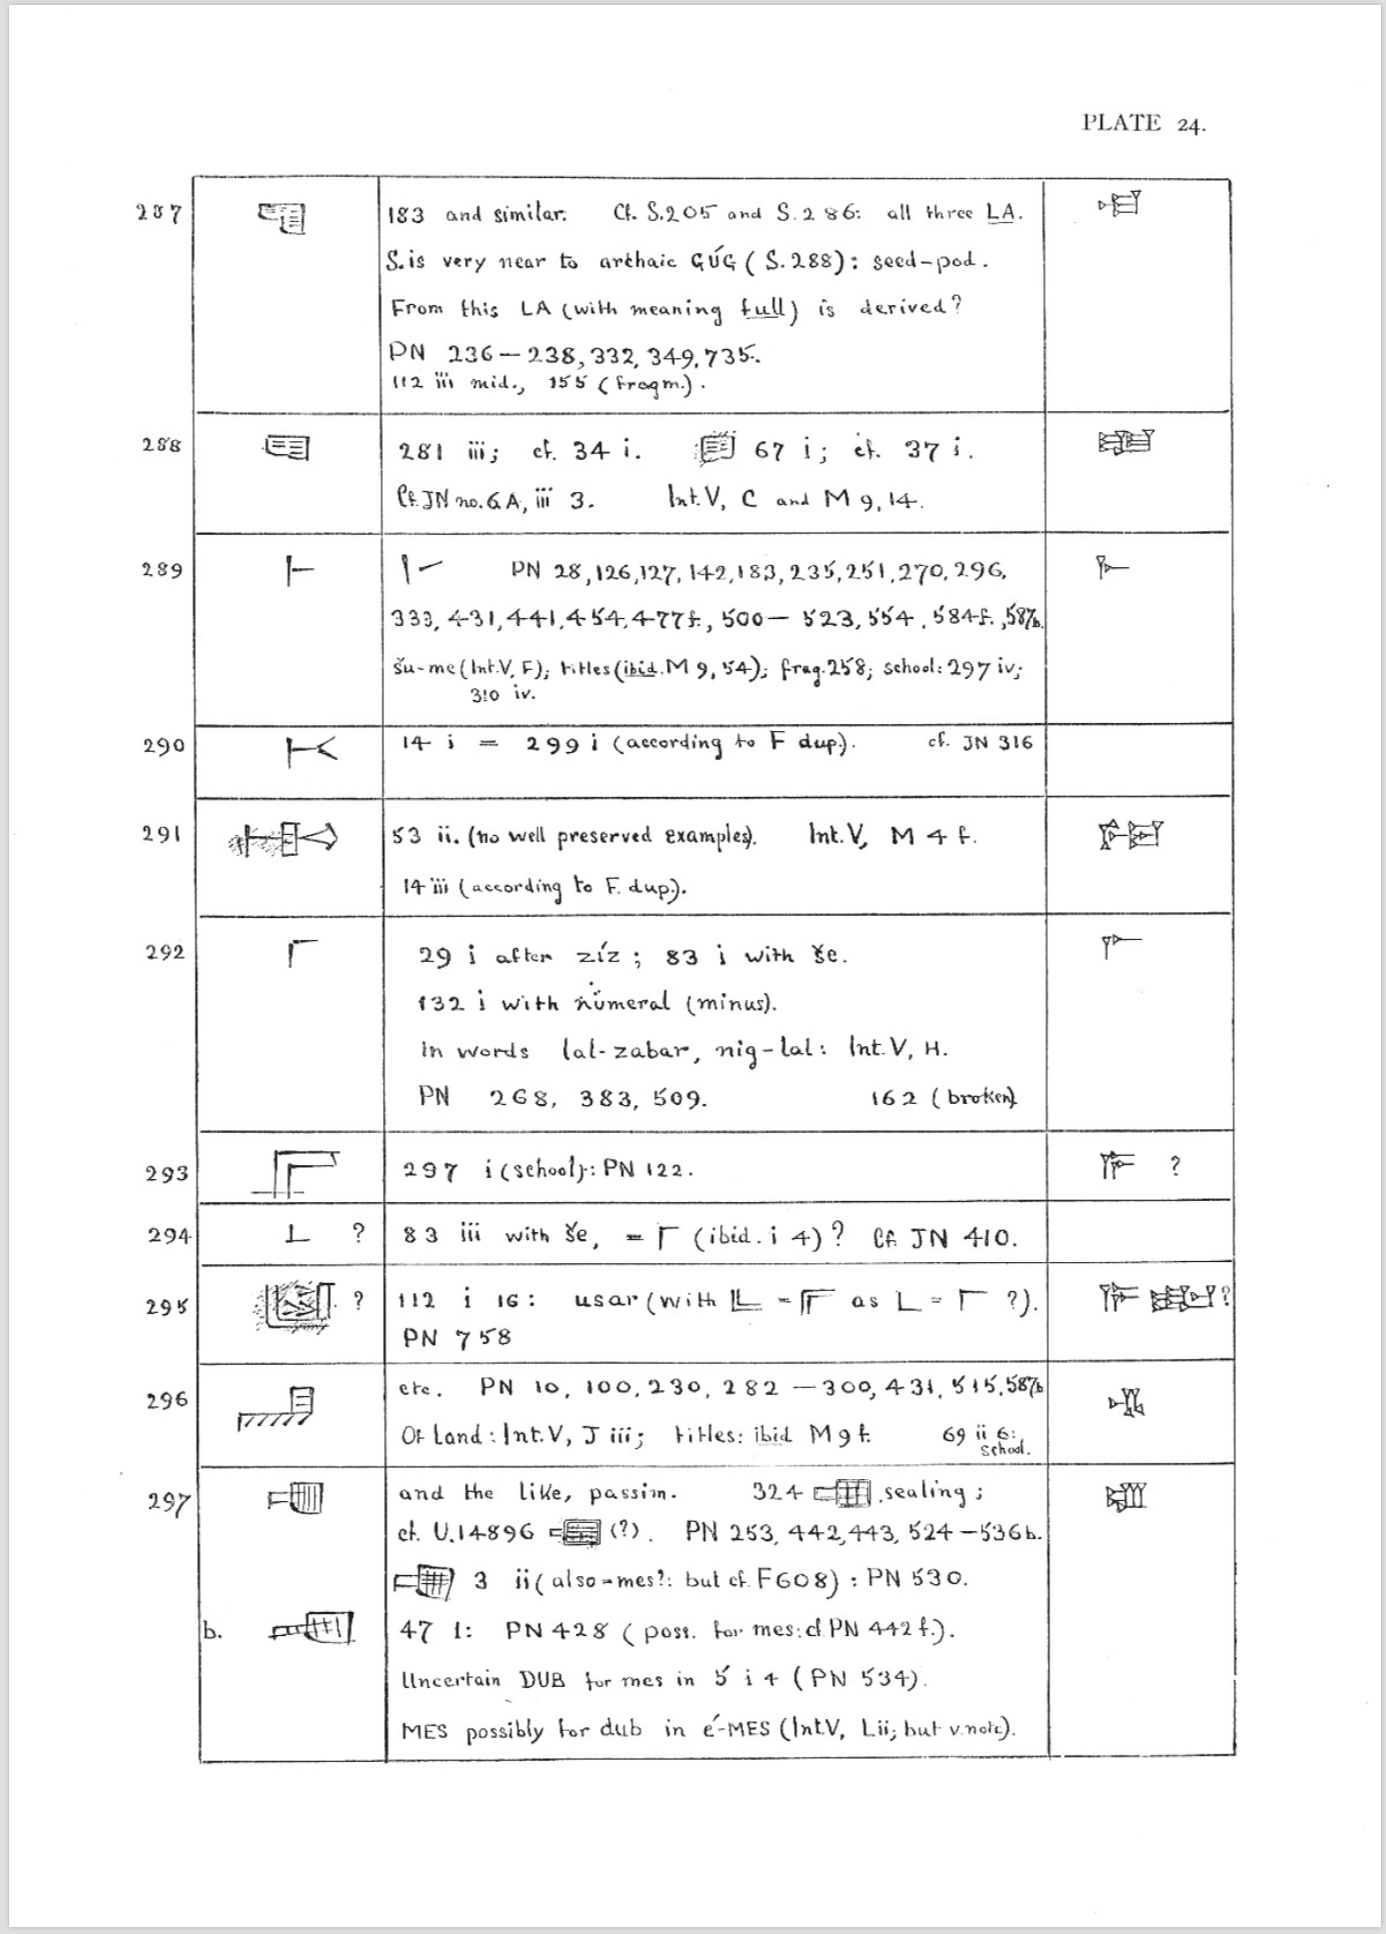 PLATE 24.
287
183 and similar. Cf. S.205 and S.286: all three LA.
S. is very near to archaic GÚG (S.288): seed-pod.
From this LA (with meaning full) is derived?
PN 236—238, 332, 349, 735.
112 iii mid., 155 (fragm.).
288
281 iii; cf. 34 i. 67 i; cf. 37 i.
Cf. JN no. 6A, iii 3. Int. V, C and M 9, 14.
289
PN 28, 126, 127, 142, 183, 235, 251, 270, 296,
333, 431, 441, 454, 477f., 500— 523, 554, 584f., 587b.
šu-me (Int. V, F); titles (ibid. M 9, 54); frag. 258; school: 297 iv;
310 iv.
290
14 i = 299 i (according to F dup.). cf. JN 316
291
53 ii. (no well preserved examples). Int. V, M 4 f.
14 iii (according to F. dup.).
292
29 i after zíz; 83 i with še.
132 i with numeral (minus).
In words lal-zabar, nig-lal: Int. V, H.
PN 268, 383, 509. 162 (broken)
293
297 i (school): PN 122. ?
294 ?
83 iii with še, = (ibid. i 4)? Cf. JN 410.
295 ?
112 i 16: usar (with = as = ?). ?
PN 758
296
etc. PN 10, 100, 230, 282 —300, 431, 515, 587b
Of land: Int. V, J iii; titles: ibid M 9 f. 69 ii 6:
school.
297
and the like, passim. 324 sealing;
cf. U.14896 (?). PN 253, 442, 443, 524—536b.
3 ii (also =mes?: but cf. F608) : PN 530.
b.
47 1: PN 428 (poss. for mes: cf. PN 442 f.).
Uncertain DUB for mes in 5 i 4 (PN 534).
MES possibly for dub in é-MES (Int. V, L ii; but v. note).